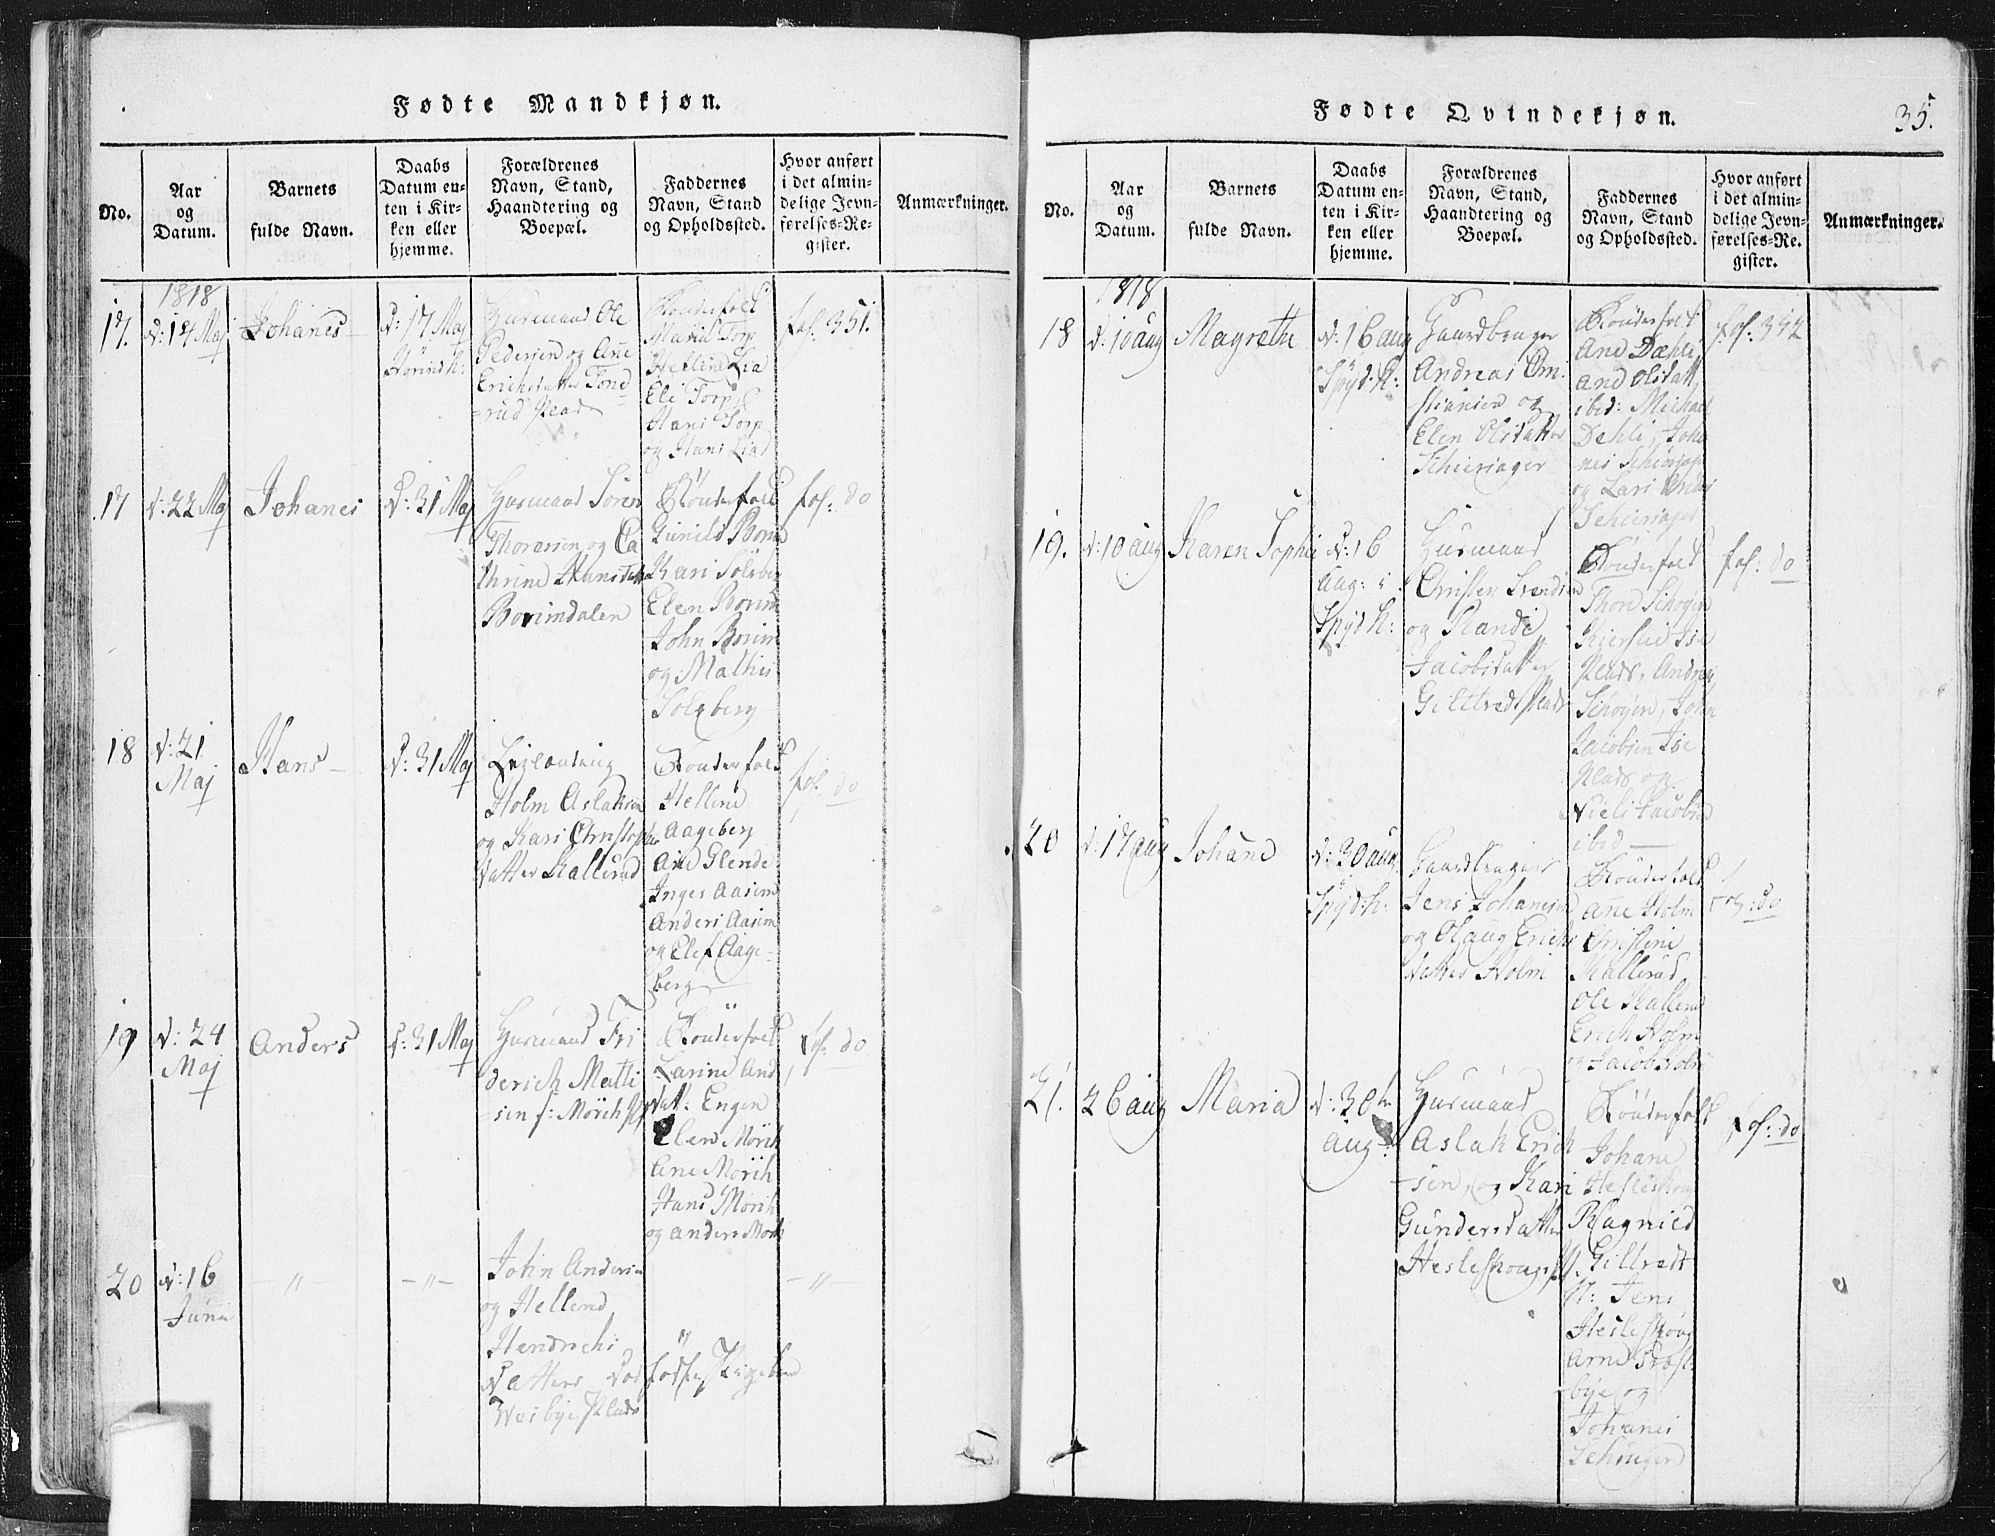 Fødte Mandkjøn.
No.
Aar
og
Datum.
Barnets
fulde Navn.
Daabs
Datum en-
ten i Kir-
ken eller
hjemme.
Forældrenes
Navn, Stand,
Haandtering og
Boepæl.
Faddernes
Navn, Stand
og Opholdssted.
Hvor anført
i det almin-
delige Jevn-
førelses-Re-
gister.
Anmærkninger.
1818
17.
d: 14 Maj
Johanes
d: 17 Maj
Huusmand Ole
Pedersen og Ane
Erichsdatter Fond
=rud Plads
Bönderfolk
Maria Torp
Hellene Lia
Eli Torp
Hans Torp
og Hans Lia
fol. 351.
17
d: 22 Maj
Johanes
d: 31 Maj
Huusmand Sören
Thoresen og Ca
thrine Hansdatter
Borimdalen
Bönderfolk
Gunild Borim
Kari Solsberg
Elen Borim
John Borim
og Mathis
Solsberg
fol: do
18
d: 21
Maj
Hans
d: 31 Maj
Holm Aslaksen
og Kari Christophe
datter Kallerud
Bönderfolk
Hellene
Aageberg
Ane Glende
Inger Aasim
Anders Aasim
og Elef Aage-
berg
fol: do
19
d: 24
Maj
Anders
d: 31 Maj
Huusmand Fri
derich Matti
sen
Bönderfolk
Larine And
dat: Engen
Elen Mörch
Ane Mörch
Hans Mörch
og anders Mörch
fol: do
20
d: 16
Junii
— " —
— " —
John Andersen
og Hellene
Hendrichs
datters
Wesbye Plads
— " —
Fødte Qvindekjøn.
35.
No.
Aar
og
Datum.
Barnets
fulde Navn.
Daabs
Datum en-
ten i Kir-
ken eller
hjemme.
Forældrenes
Navn, Stand,
Haandtering og
Boepæl.
Faddernes
Navn, Stand
og Opholdssted.
Hvor anført
i det almin-
delige Jevn-
førelses-Re-
gister.
Anmærkninger.
1818
18
d: 10 aug
Magrethe
d: 16 aug
Spyd: K:
Gaardbruger
Andreas Chri
stiansen og
Elen Olsdatter
Schieriager
Bönderfolk
Ane Dæhli
ane Olsdatt,
ibid: Michael
Dehli, Joha
nes Schieriager
og Lars
Schieriager
fol. 352
19.
d: 10 aug
Karen Sophie
d: 16
Aug: i
Spyd K:
Huusmand
Christen Svendsen
og Randi
Jacobsdatter
Giltvedt Plads
Bönderfolk
Plads, Andreas
John
Jacobsen
Plads og
Niels Jacobsen
ibid —
fol: do
20
d: 17 aug
Johane
d: 30 aug.
Spyd: K:
Gaardbruger
Jens Johanesen
og Olaug Erichs
datter Holm
Bönderfolk
ane Holm
Christine
Kallerud,
Ole Kallerud
Erich Holm
og Jacob Holm
fol: do
21.
26 aug
Maria
d: 30te
aug:
Huusmand
Aslak Erich
-sen, og Kari
Gundersdatter
Hesleskougs
Bönderfolk
Johane
Hesleskoug
Ragnild
Giltvedt
Jens
Hesleskoug
Arne Præst
bye og
Johanes
fol: do